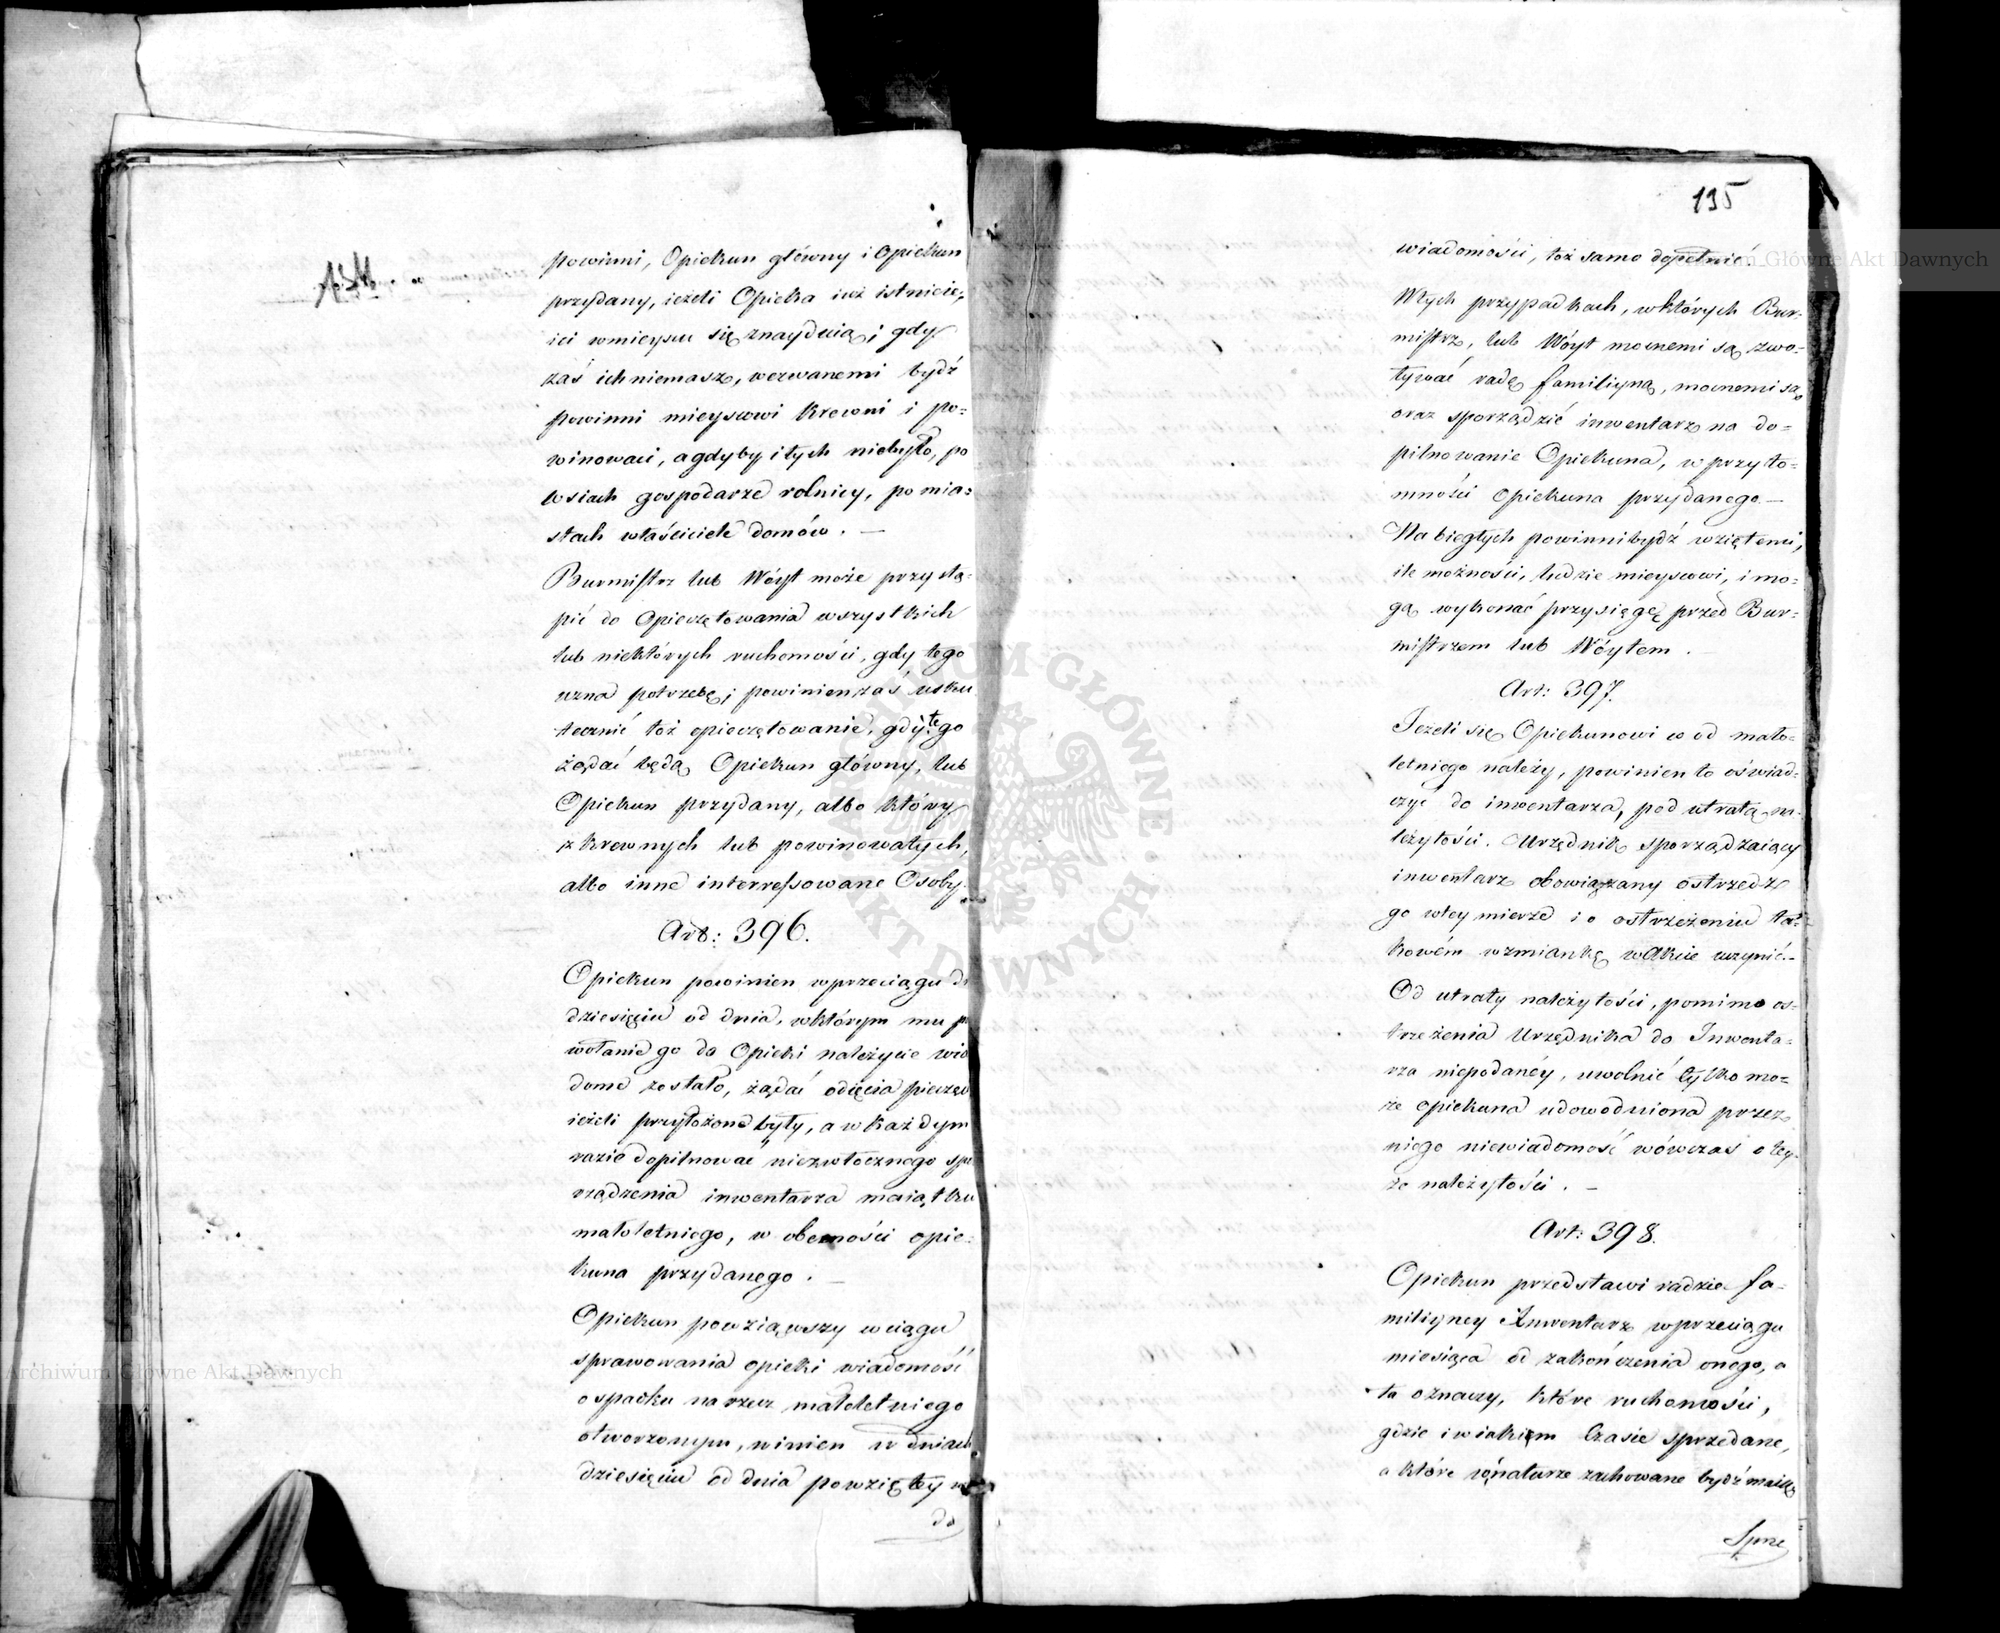 powinni, Opiekun główny i Opiekun
przydany, ieżeli Opieka iuż istnieie,
ici wmieyscu się znayduią; gdy
zaś ich niemasz, wezwanemi bydź
powinni mieyscowi Krewni i po-
winowaci, a gdyby i tych niebyło, po
wsiach gospodarze rolnicy, po mia-
stach właściciele domów. —
Burmistrz lub Wóyt może przystą-
pić do Opieczętowania wszystkich
lub niektórych ruchomości, gdy tego
uzna potrzebę; powinien zaś usku
tecznić toż opieczętowanie, gdy tego
żądać będą Opiekun główny, lub
Opiekun przydany, albo który
z krewnych lub powinowatych,
albo inne interressowane Osoby.
Art: 396.
Opiekun powinien wprzeciągu d
dziesięciu od dnia, wktórym mu p
wołanie go do Opieki należycie wia
dome zostało, żądać odięcia pieczęci
ieżeli przyłożone były, a w każdym
razie dopilnować niezwłocznego spo
rządzenia inwentarza maiątku
małoletniego, w obecności opie-
kuna przydanego. —
Opiekun powziąwszy wciągu
sprawowania opieki wiadomość
o spadku na rzecz małoletniego
otworzonym, winien w dniach
dziesięciu od dnia powziętey w
do
135
wiadomości, toż samo dopełnić. —
Wtych przypadkach, wktórych Bur-
mistrz, lub Wóyt mocnemi są zwo-
ływać radę familiyną, mocnemi są
oraz sporządzić inwentarz na do-
pilnowanie Opiekuna, w przyto-
mności Opiekuna przydanego. —
Na biegłych powinni bydź wziętemi,
ile możności, ludzie mieyscowi, i mo-
gą wykonać przysięgę przed Bur-
mistrzem lub Wóytem. —
Art: 397.
Jeżeli się Opiekunowi co od mało-
letniego należy, powinien to oświad-
czyć do inwentarza, pod utratą na-
leżytości. Urzędnik sporządzaiący
inwentarz obowiązany ostrzedz
go wtey mierze i o ostrzeżeniu ta-
kowém wzmiankę w akcie uczynić. —
Od utraty należytości, pomimo os-
trzeżenia Urzędnika do Inwenta-
rza niepodanéy, uwolnić tylko mo-
że opiekuna udowodniona przez
niego niewiadomość wówczas o tey-
że należytości. —
Art: 398.
Opiekun przedstawi radzie fa-
miliyney Inwentarz wprzeciągu
miesiąca od zakończenia onego, a
ta oznaczy, które ruchomości,
gdzie i wiakiem Czasie sprzedane,
a które w naturze zachowane bydź maią
Sprze
Archiwum Główne Akt Dawnych
Archiwum Główne Akt Dawnych
ARCHIWUM GŁÓWNE AKT DAWNYCH